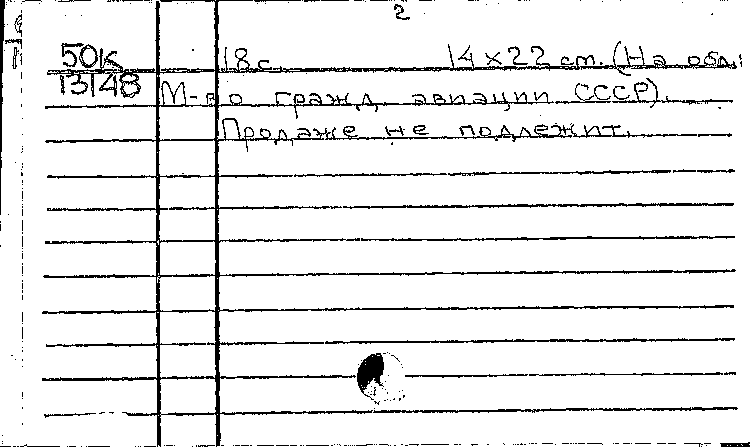 2
50К 18 с. 14 х 22 cm. (На обл:
13148 М-во гражд. авиации СССР).
Продаже не подлежит.